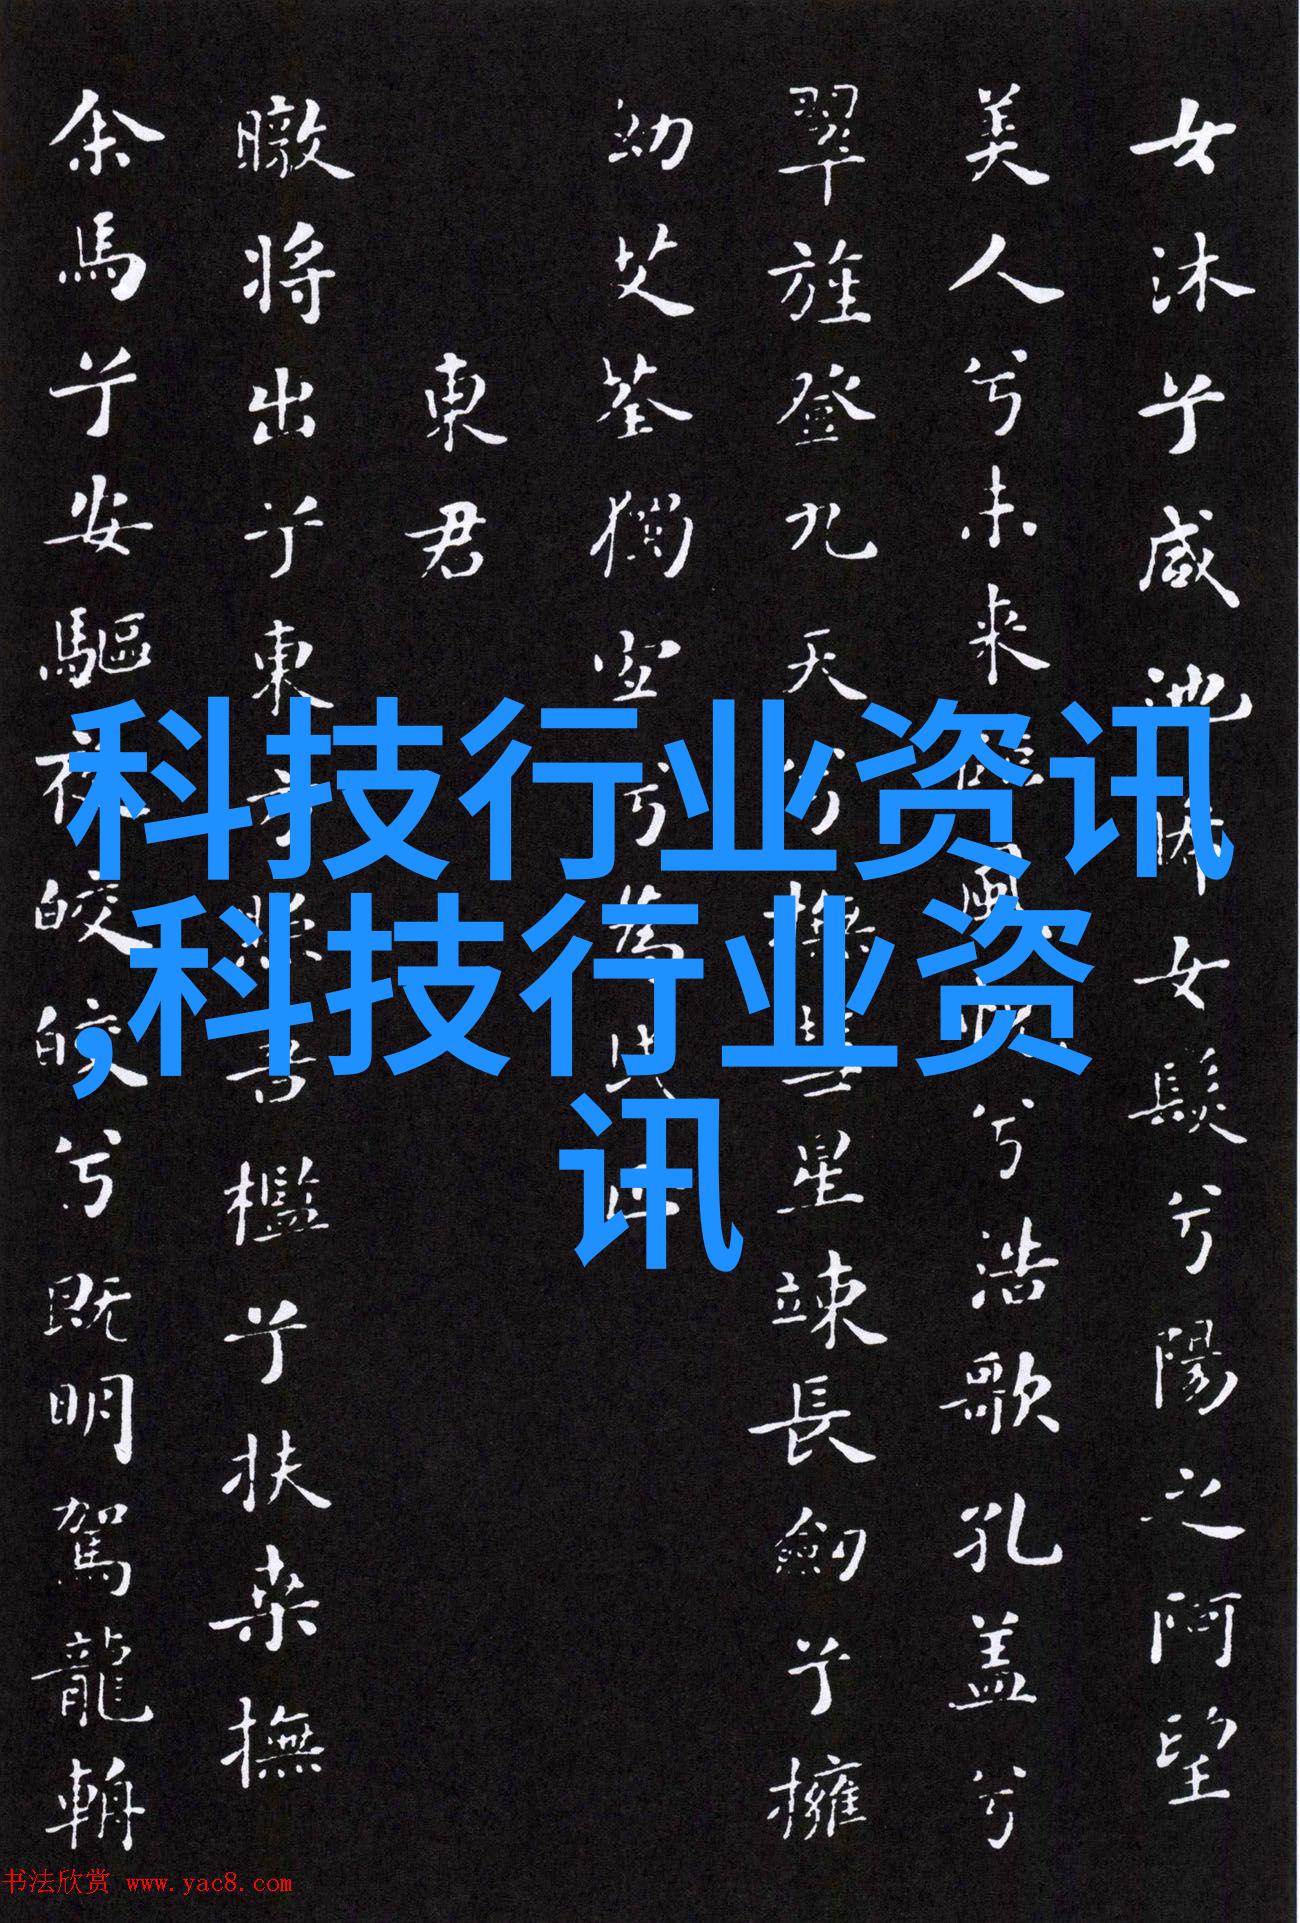 女沐兮咸池晞女髮兮陽之阿望
美人兮未来臨風怳兮浩歌孔盖兮
翠旌登九天兮撫彗星竦長劒兮擁
幼艾荃獨宜兮為民正
東君
暾将出兮東方照吾檻兮扶桑撫
余馬兮安驅夜皎皎兮既明駕龍輈
科技行业资讯
,科技行业资
讯
书法欣赏 www.yac8.com